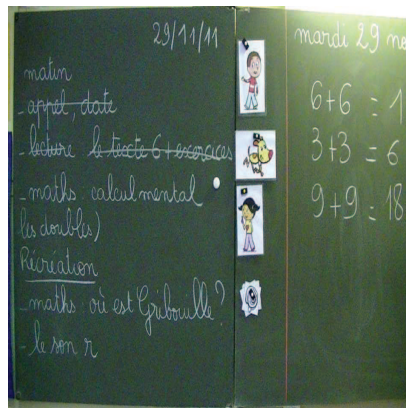 29/11/11
matin
- appel, date
- lecture le texte 6 + exercices
- maths : calcul mental
les doubles)
Récréation
- maths : où est Gribouille ?
- le son r
mardi 29 no
6+6 = 1
3+3 = 6
9+9 = 18